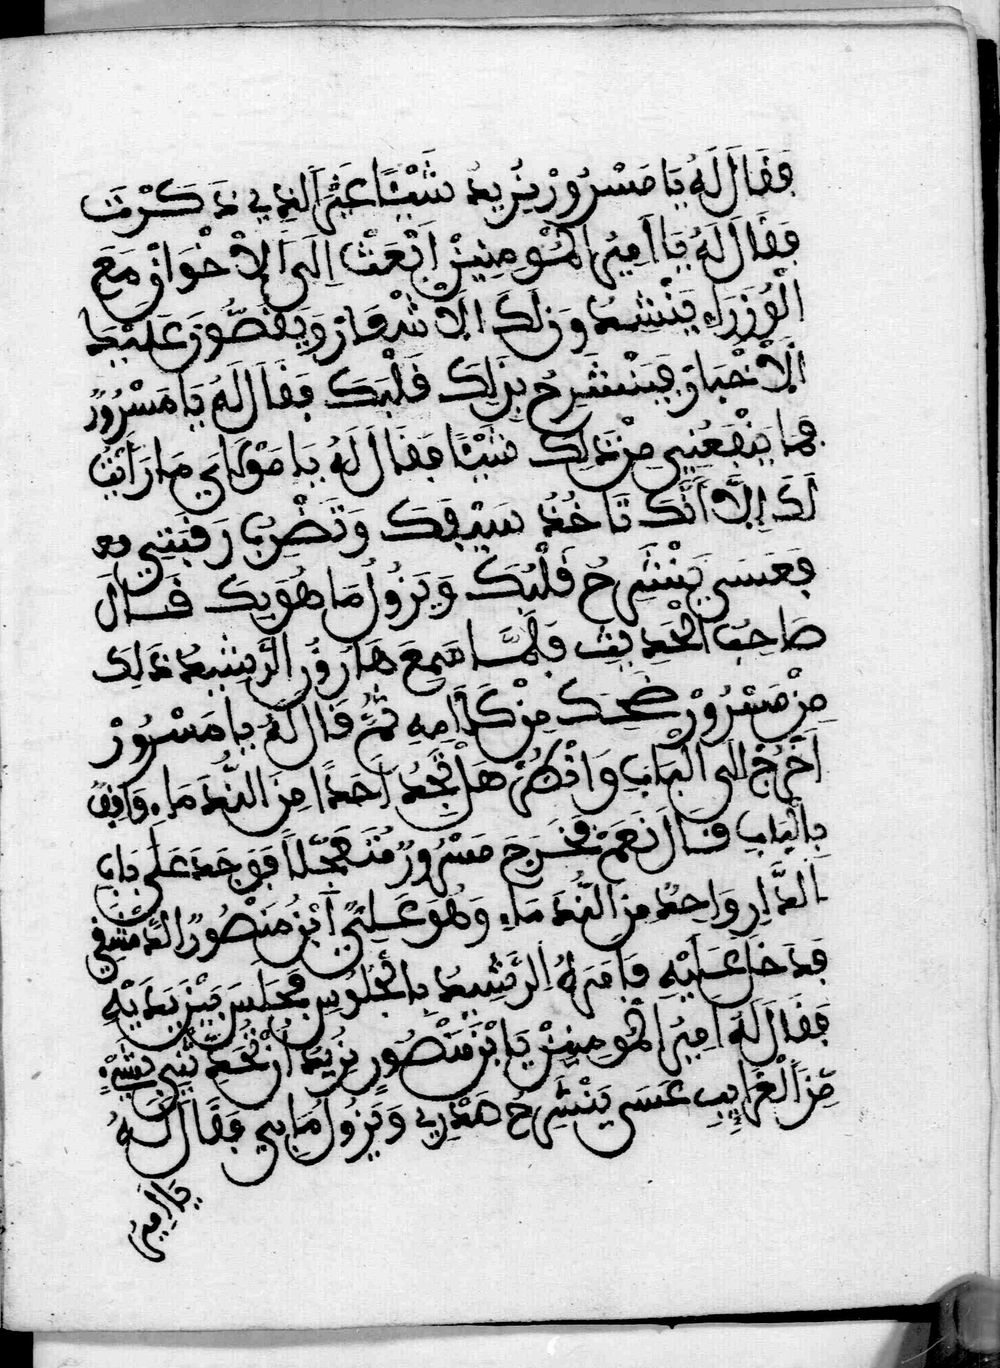 فَقَالَ لَهُ يَا مَسْرُورْ نِرِيدُ شَيْئًا غَيْرَ الَّذِي ذَكَرْتَ
فَقَالَ لَهُ يَا أَمِيرَ الْمُومِنِينْ اَبْعَثْ اِلَى الاِخْوَانْ مَعَ
الْوُزَرَاءِ يَنْشِدُو زلَكَ الاَشْعَارْ وَيَقُصُّونَ عَلَيْكَ
الاَخْبَارْ فَيَنْشَرِحُ بِزَلِكَ قَلْبَكَ فَقَالَ لَهُ يَا مَسْرُورْ
فما يَنْفَعُنِي مِنْ ذَلِكَ شَيْئًا فَقَالَ لَهُ يَا مَوْلَاي مَا رَاَيْتُ
لَكَ اِلَّا اَنَّكَ تَاخُذُ سَيْفِكَ وَتَضْرِبُ رَقْبَتِي بِهِ
فَعَسَى يَنْشَرِحُ قَلْبُكَ وَيَزُولُ مَا هُوَ بِكَ قَالَ
صَاحِبُ الْحَدِيثِ فَلَمَّا سَمِعَ هَارُونُ الرَّشِيدُ ذَلِكَ
مِنْ مَسْرُورْ ضَحِكَ مِنْ كَلَامِهِ ثُمَّ قَالَ لَهُ يَا مَسْرُورْ
اَخْرُجْ اِلَى الْبَابِ وَانْظُرْ هَلْ تَجِدُ اَحَدًا مِنَ النُّدَمَاءِ وَاقِفٌ
بِالْبَابِ قَالَ نَعَمْ فَخَرَجَ مَسْرُورٌ مُتَعَجِّلاً فَوَجَدَ عَلَى بَابِ
الدَّارِ وَاحِدٌ مِنَ النُّدَمَاءِ وَهُوَ عَلِيٌّ اَبْنُ مَنْصُورٌ الدِّمَشْقِي
فَدَخَلَ عَلَيْهِ فَاَمَرَهُ الرَّشِيدُ بِالْجُلُوسِ فَجَلَسَ بَيْنَ يَدَيْهِ
فَقَالَ لَهُ اَمِيرُ الْمُومِنِينْ يَا ابْنَ مَنْصُورٍ نِرِيدُ اَنْ تُحَدِّثَنِي بِشَيْءٍ
مِّنَ الْغَرَايِبِ عَسَى يَنْشَرِحُ صَدْرِي وَيَزُولُ مَا بِي فَقَالَ لَهُ
يَا اَمِيرَ